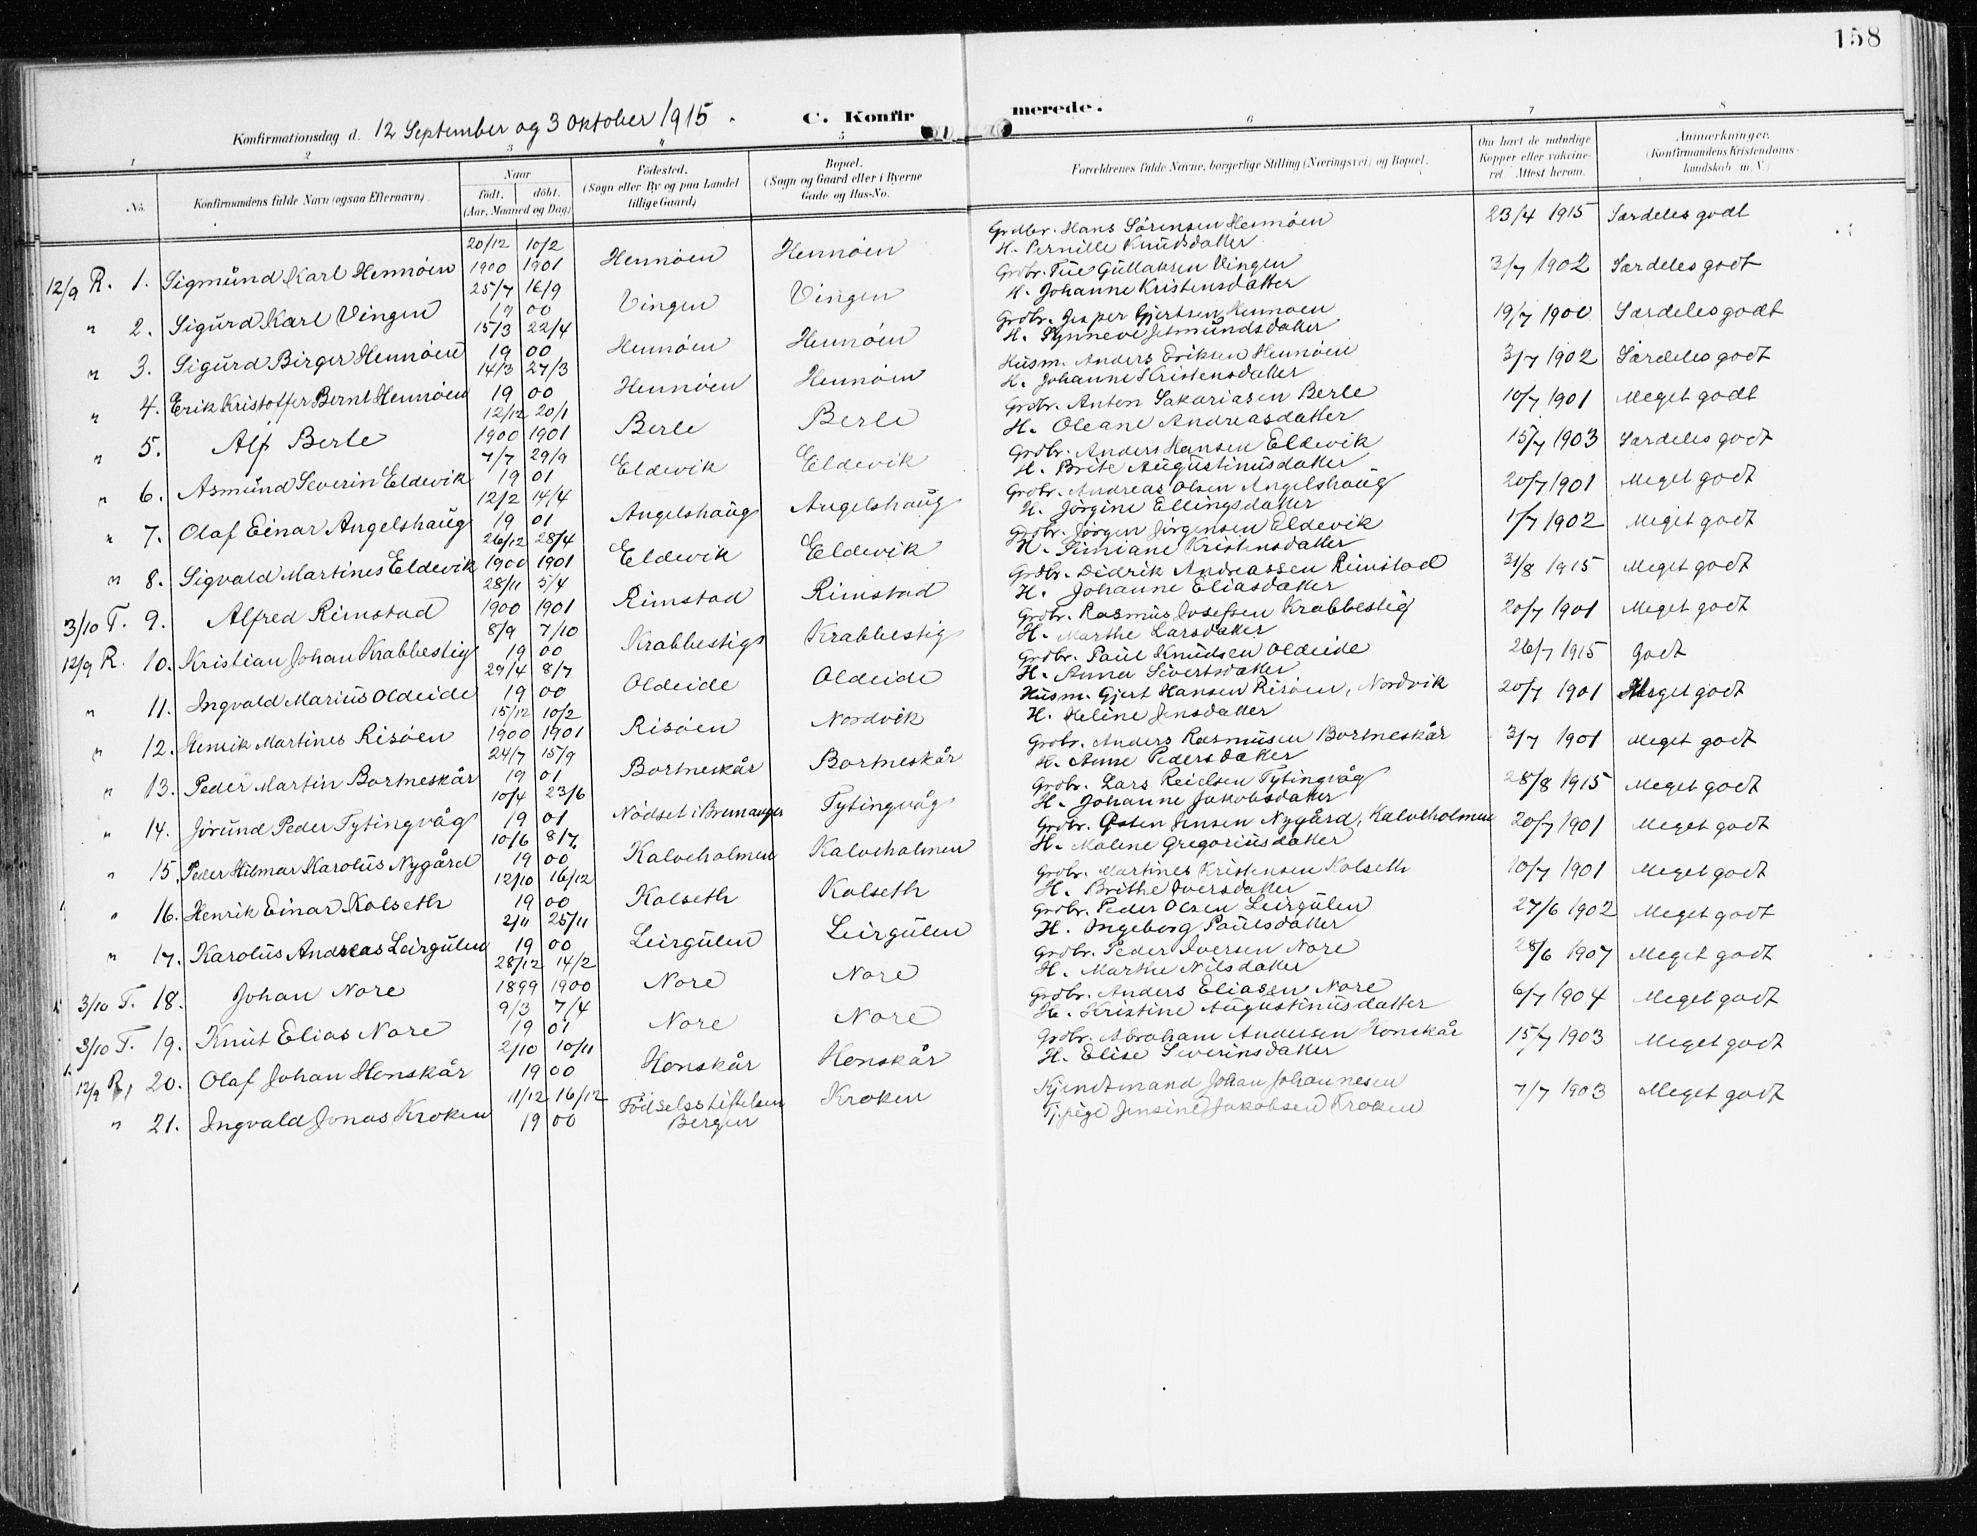 158
Konfirmationsdag d. 12 September og 3 Oktober 1915. C. Konfirmerede.
1 2 3 4 5 6 7 8
No. Konfirmandens fulde Navn (ogsaa Efternavn). Naar født. døbt. (Aar, Maaned og Dag) Fødested. (Sogn eller By og paa Landet tillige Gaard) Bopæl. (Sogn og Gaard eller i Byerne Gade og Hus-No. Forældrenes fulde Navne, borgerlige Stilling (Næringsvei) og Bopæl. Om havt de naturlige Kopper eller vakcineret. Attest herom. Anmærkninger. (Konfirmandens Kristendomskundskab m. V.)
12/9 R. 1. Sigmund Karl Hennøen 20/12 1900 10/2 1901 Hennøen Hennøen Grdbr. Hans Sørensen Hennøen 23/4 1915 Særdeles godt
H. Pernille Knudsdatter
" 2. Sigurd Karl Vingen 25/7 16/9 19 00 Vingen Vingen Grdbr. Tue Gullaksen Vingen 3/7 1902 Særdeles godt
H. Johanne Kristensdatter
" 3. Sigurd Birger Hennøen 15/3 22/4 19 00 Hennøen Hennøen Grdbr. Jesper Gjertsen Hennøen 19/7 1900 Særdeles godt
H. Synneve Jetmundsdatter
" 4. Erik Kristoffer Bernt Hennøen 14/3 27/3 19 00 Hennøen Hennøen Husm. Anders Eriksen Hennøen 3/7 1902 Særdeles godt
H. Johanne Kristensdatter
" 5. Alf Berle 12/12 1900 20/1 1901 Berle Berle Grdbr. Anton Sakariasen Berle 10/7 1901 Meget godt
H. Oleane Andreasdatter
" 6. Asmund Severin Eldevik 7/7 29/9 19 01 Eldevik Eldevik Grdbr. Anders Hansen Eldevik 15/7 1903 Særdeles godt
H. Brite Augustinusdatter
" 7. Olaf Einar Angelshaug 12/2 14/4 19 01 Angelshaug Angelshaug Grdbr. Andreas Olsen Angelshaug 20/7 1901 Meget godt
H. Jørgine Ellingsdatter
" 8. Sigvald Martines Eldevik 26/12 1900 28/4 1901 Eldevik Eldevik Grdbr. Jørgen Jørgensen Eldevik 1/7 1902 Meget godt
H. Simiane Kristensdatter
3/10 T. 9. Alfred Rimstad 28/11 1900 5/4 1901 Rimstad Rimstad Grdbr. Didrik Andreassen Rimstad 31/8 1915 Meget godt
H. Johanne Eliasdatter
12/9 R. 10. Kristian Johan Krabbestig 8/9 7/10 19 00 Krabbestig Krabbestig Grdbr. Rasmus Josefsen Krabbestig 20/7 1901 Meget godt
H. Marthe Larsdatter
" 11. Ingvald Marius Oldeide 29/4 8/7 19 00 Oldeide Oldeide Grdbr. Paul Knudsen Oldeide 26/7 1915 Godt
H. Anna Sivertsdatter
" 12. Henrik Martines Risøen 15/12 1900 10/2 1901 Risøen Nordvik Husm. Gjert Hansen Risøen, Nordvik 20/7 1901 Meget godt
H. Heline Jensdatter
" 13. Peder Martin Bortneskår 24/7 15/9 19 01 Bortneskår Bortneskår Grdbr. Anders Rasmusen Bortneskår 3/7 1901 Meget godt
H. Anne Pedersdatter
" 14. Jørund Peder Tytingvåg 10/4 23/6 19 01 Nødset i Bremanger Tytingvåg Grdbr. Lars Reielsen Tytingvåg 28/8 1915 Meget godt
H. Johanne Jakobsdatter
" 15. Peder Hilmar Karolus Nygård 10/6 8/7 19 00 Kalveholmen Kalveholmen Grdbr. Østen Jensen Nygård, Kalveholmen 20/7 1901 Meget godt
H. Malene Gregoriusdatter
" 16. Henrik Einar Kolseth 12/10 16/12 19 00 Kolseth Kolseth Grdbr. Martines Kristensen Kolseth 10/7 1901 Meget godt
H. Brithe Iversdatter
" 17. Karolus Andreas Leirgulen 2/11 25/11 19 00 Leirgulen Leirgulen Grdbr. Peder Olsen Leirgulen 27/6 1902 Meget godt
H. Ingeborg Paulsdatter
3/10 T. 18. Johan Nore 28/12 1899 14/2 1900 Nore Nore Grdbr. Peder Iversen Nore 28/6 1907 Meget godt
H. Marthe Nilsdatter
3/10 T. 19. Knut Elias Nore 9/3 7/4 19 01 Nore Nore Grdbr. Anders Eliasen Nore 6/7 1904 Meget godt
H. Kristine Augustinusdatter
12/9 R, 20. Olaf Johan Honskår 2/10 10/11 19 00 Honskår Honskår Grdbr. Abraham Andersen Honskår 15/7 1903 Meget godt
H. Elise Severinsdatter
" 21. Ingvald Jonas Kroken 11/12 16/12 19 00 Fødselsstiftelsen Bergen Kroken Kjendtmand Johan Johannesen 7/7 1903 Meget godt
Tj.pige Jensine Jakobsen Kroken